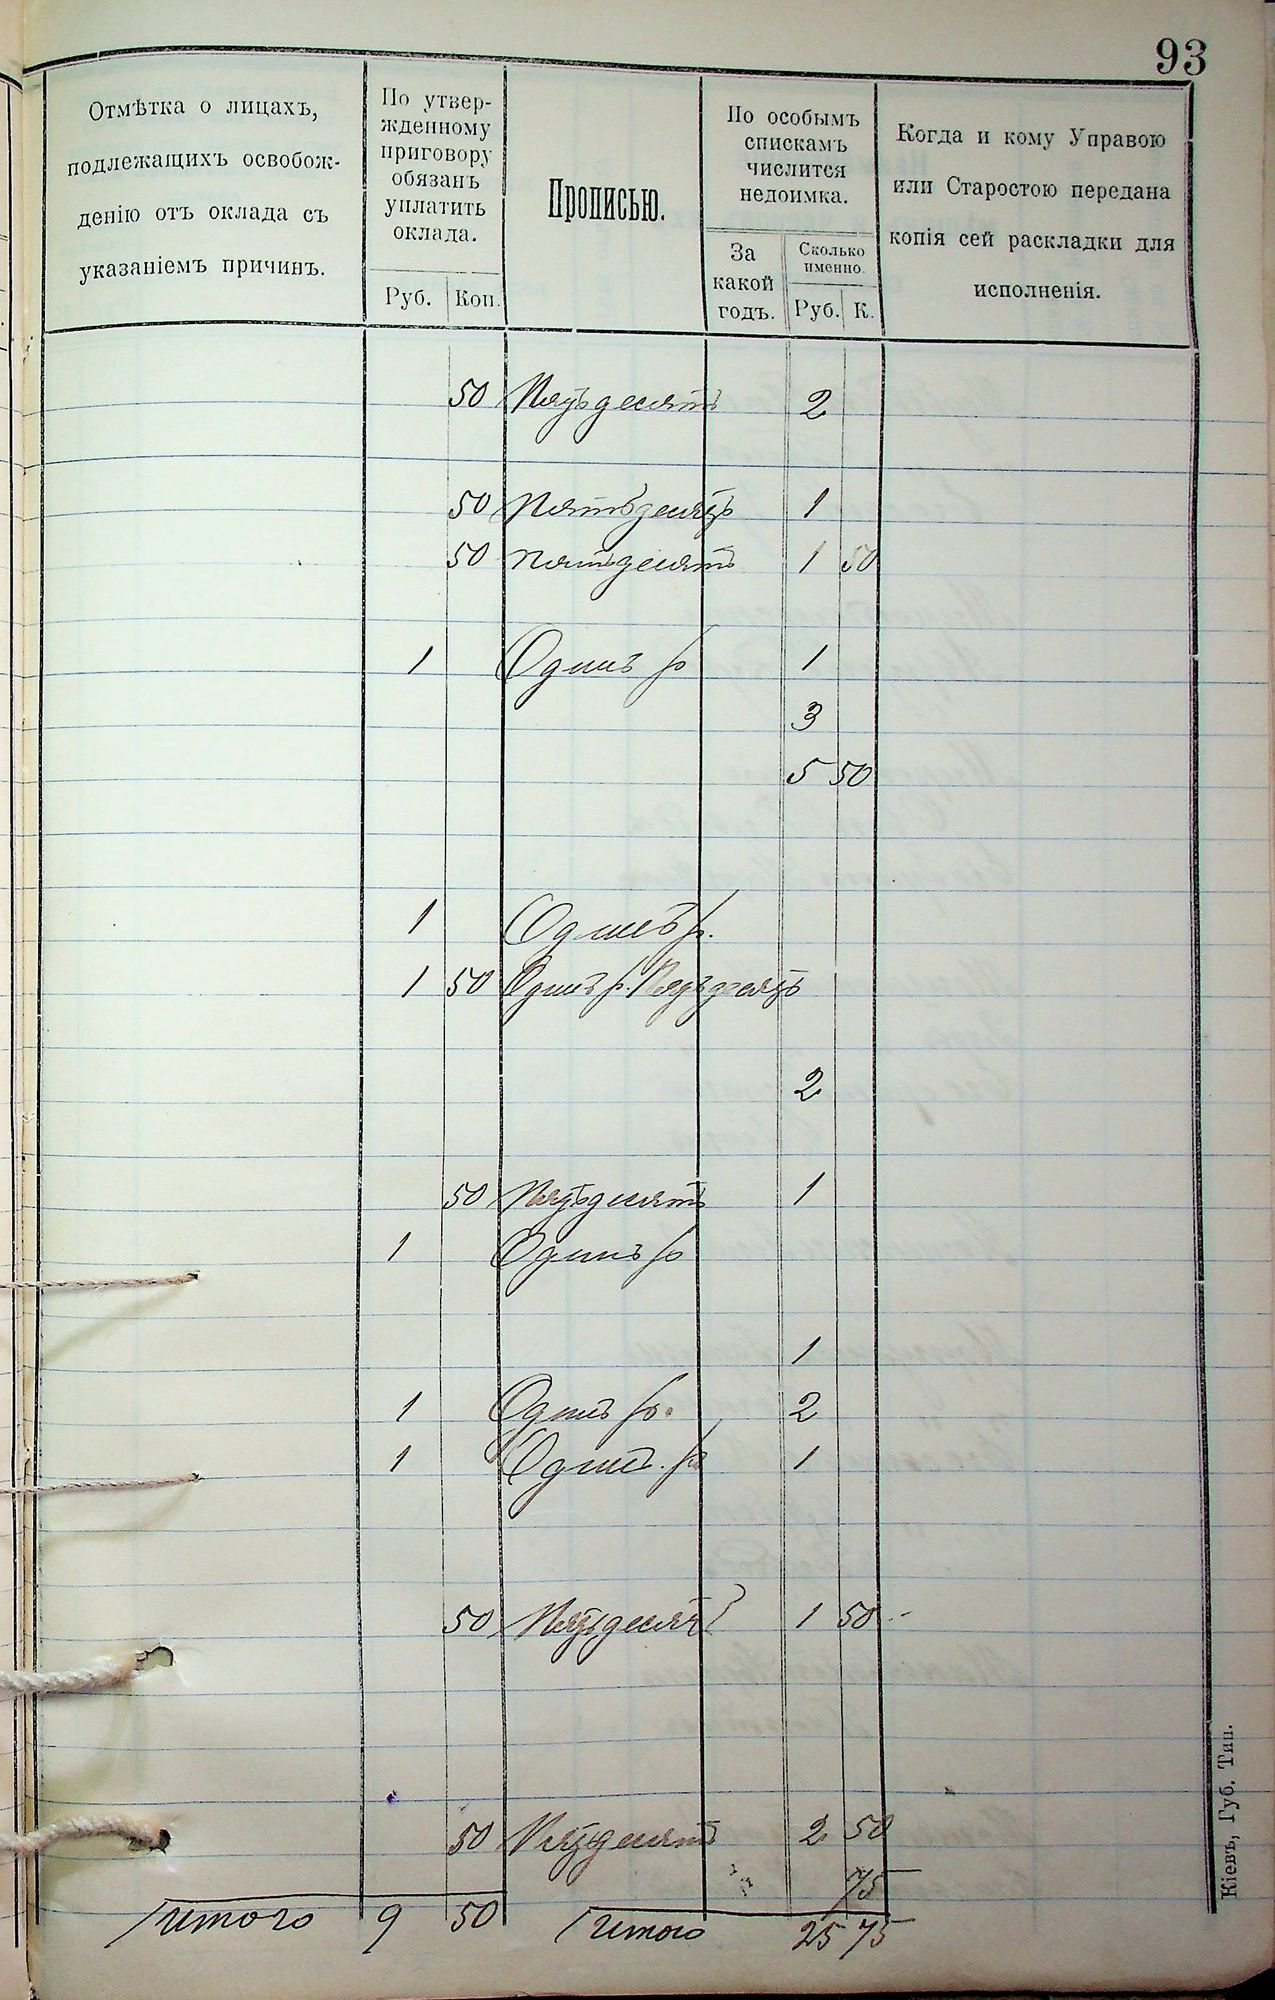 93
Отмѣтка о лицахъ,
подлежащихъ освобож-
денію отъ оклада съ
указаніемъ причинъ.
По утвер-
жденному
приговору
обязанъ
уплатить
оклада.
Руб. Коп.
Прописью.
По особымъ
спискамъ
числится
недоимка.
За
какой
годъ.
Сколько
именно.
Руб. К.
Когда и кому Управою
или Старостою передана
копія сей раскладки для
исполненія.
50 Пятьдесятъ 2
50 Пятьдесятъ 1
50 Пятьдесятъ 1 50
1 Одинъ р 1
3
5 50
1 Одинъ р.
1 50 Одинъ р. Пятьдесятъ
2
50 Пятьдесятъ 1
1 Одинъ р
1
1 Одинъ р. 2
1 Одинъ. р 1
50 Пятьдесят 1 50
50 Пятьдесятъ 2 50
75
Итого 9 50 Итого 25 75
Кіевъ, Губ. Тип.